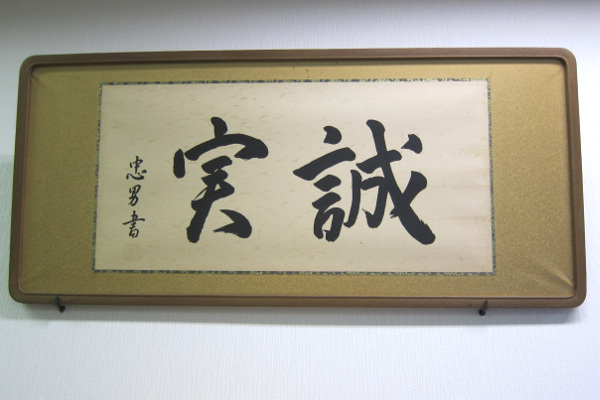 誠実
忠男書